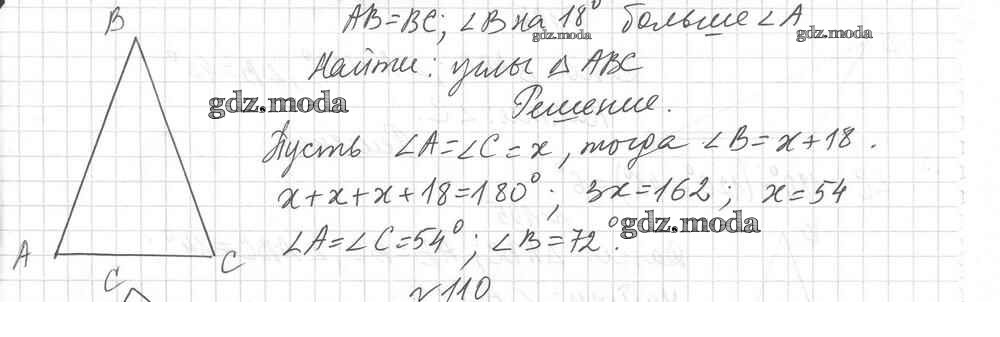 B
AB=BC; ∠B на 18° больше ∠A
gdz.moda gdz.moda
Найти: углы △ ABC
gdz.moda
Решение.
Пусть ∠A=∠C=x, тогда ∠B=x+18.
x+x+x+18=180°; 3x=162; x=54
gdz.moda
∠A=∠C=54°; ∠B=72°.
A C
C
~110